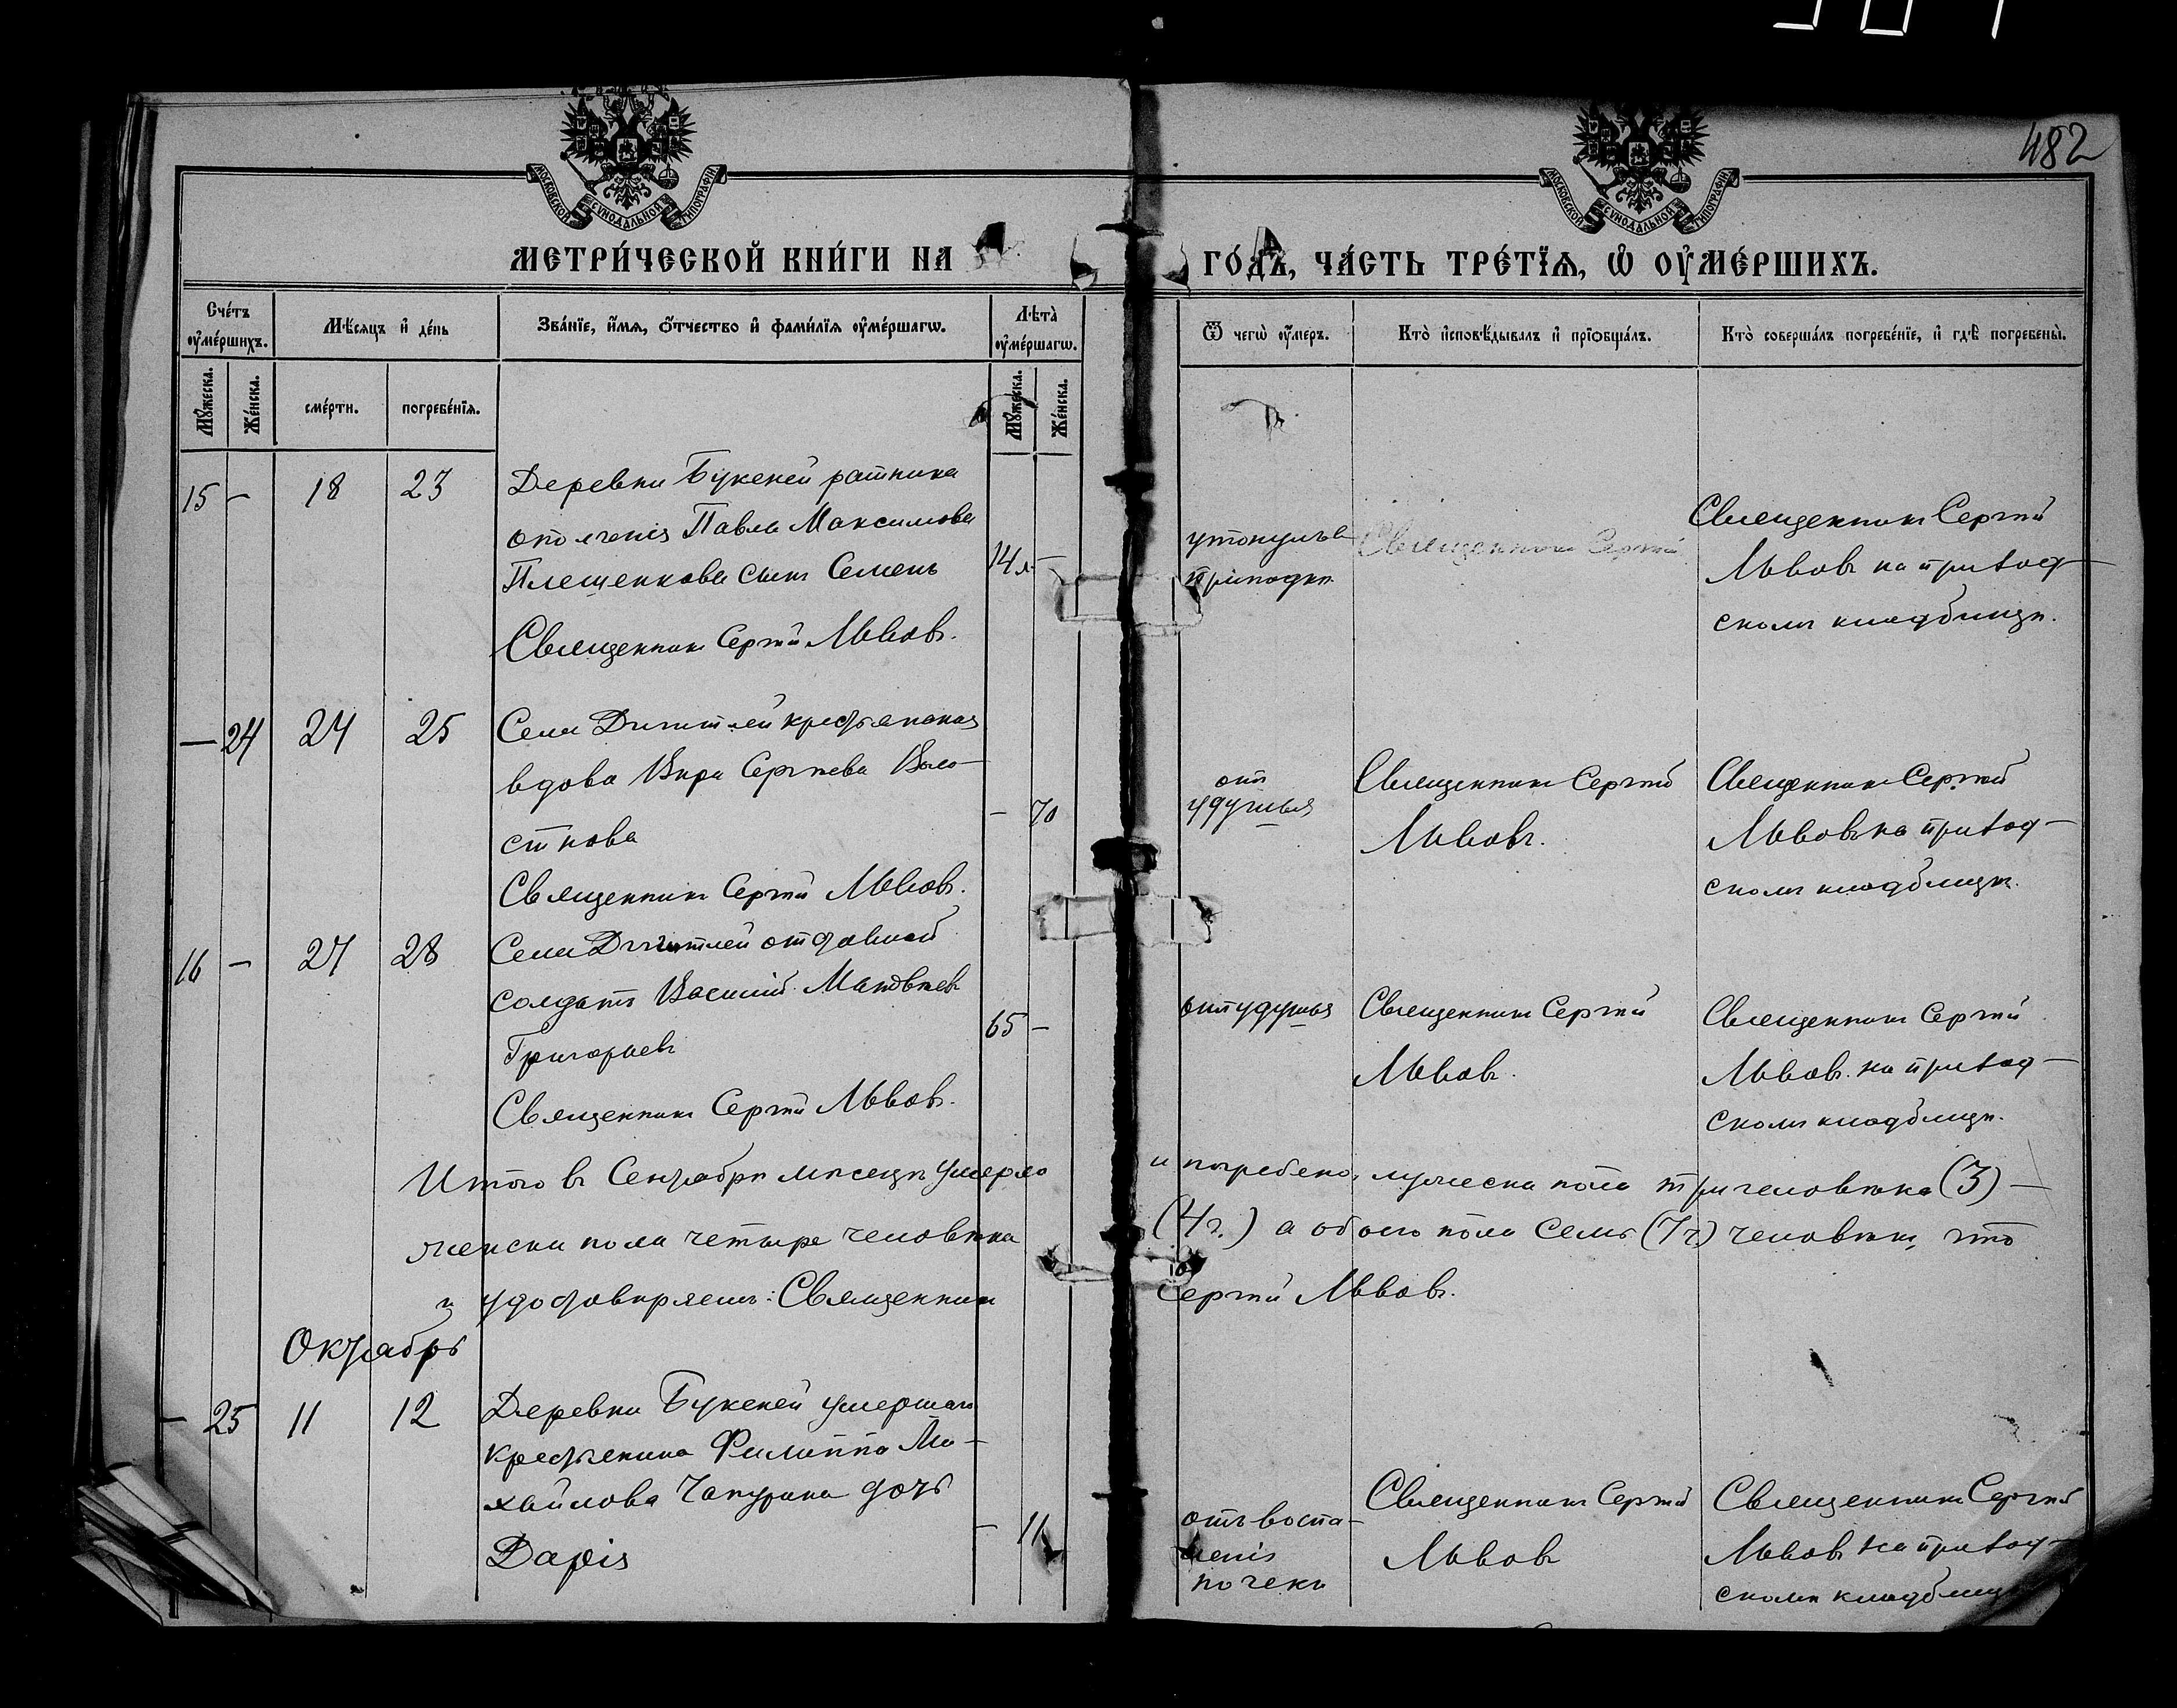 482
МОСКОВСКОЙ СѴНОДАЛЬНОЙ ТИПОГРАФІИ
МОСКОВСКОЙ СѴНОДАЛЬНОЙ ТИПОГРАФІИ
МЕТРИ́ЧЕСКОЙ КНИ́ГИ НА ГО́ДЪ, ЧА́СТЬ ТРЕ́ТЇѦ, Ѡ҆ ОУ҆МЕ́РШИХЪ.
Сче́тъ оу҆ме́ршихъ.
Мѣ́сяцъ и҆ де́нь
Зва́нїе, и҆́мѧ, ѻ҆́тчество и҆ фами́лїѧ оу҆ме́ршагѡ.
Лѣ́та̀ оу҆ме́ршагѡ.
Ѿ чегѡ̀ оу҆́меръ.
Кто̀ и҆сповѣ́дывалъ и҆ прїѡбща́лъ.
Кто̀ соверша́лъ погребе́нїе, и҆ гдѣ̀ погребены̀.
Мꙋ́жеска.
Же́нска.
сме́рти.
погребе́нїѧ.
Мꙋ́жеска.
Же́нска.
15 — 18 23
Деревни Букеней ратника
ополченія Павла Максимова
Плещенкова сынъ Семенъ
Священникъ Сергій Львовъ.
14 л —
утонулъ въ
припадкѣ
Священникъ Сергій
Священникъ Сергій
Львовъ на приход-
скомъ кладбищѣ.
— 24 24 25
Села крестьянская
вдова Вѣра Сергѣева
стнова
Священникъ Сергій Львовъ.
— 70
отъ
удушья
Священникъ Сергій
Львовъ.
Священникъ Сергій
Львовъ на приход-
скомъ кладбищѣ.
16 — 27 28
Села отставной
солдатъ Василій Матвѣевъ
Григорьевъ
Священникъ Сергій Львовъ.
65 —
отъ удушья
Священникъ Сергій
Львовъ.
Священникъ Сергій
Львовъ на приход-
скомъ кладбищѣ.
Итого въ Сентябрѣ мѣсяцѣ умерло и погребено, мужеска пола три человѣка (3) —
женска пола четыре человѣка (4 ч.) а обоего пола семь (7 ч.) человѣкъ, что
и удостовѣряемъ: Священникъ Сергій Львовъ.
Октябрь
— 25 11 12
Деревни Букеней умершаго
крестьянина Филиппа Ми-
хайлова Чапурина дочь
Дарія
— 11
отъ воспа-
ленія
почекъ
Священникъ Сергій
Львовъ
Священникъ Сергій
Львовъ на приход-
скомъ кладбищѣ